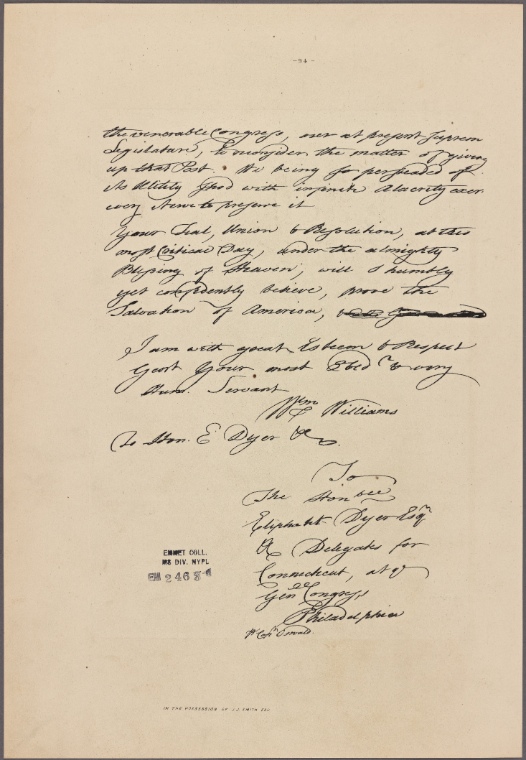 -94-
the venerable Congress, our at present Suprem
Legislature, to reconsider the matter of giving
up that Post. We being for perswaded of
its Utility shod with infinite Alacrity exer
every Nerve to preserve it
Your Zeal, Union & Resolution, at this
most Critical Day, under the almighty
Blessing of Heaven, will I humbly
yet confidently believe, prove the
Salvation of America,
I am with great Esteem & Respect
Gent Your most Obedt & very
Hum. Servant
Wm Williams
To Hon. E Dyer &c
To
The Honble
Eliphalet Dyer Esqr
&c Delegates for
Connecticut, at ye
Genll Congress
Philadelphia
EMMET COLL.
MS DIV. NYPL
EM 246
IN THE POSSESSION OF J.J. SMITH ESQ.